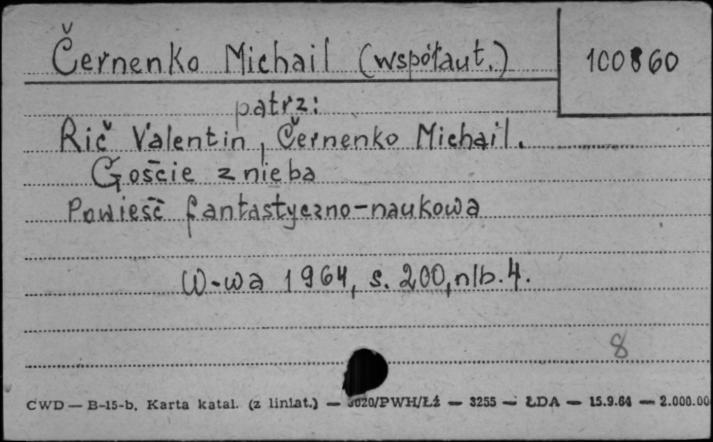 Černenko Michail (współaut.)
100860
patrz:
Rič Valentin, Černenko Michail.
Goście z nieba
Powieść fantastyczno-naukowa
W-wa 1964, s. 200, nlb. 4.
8
CWD — B-15-b. Karta katal. (z liniat.) — 3020/PWH/Łź — 3255 — ŁDA — 15.9.64 — 2.000.00